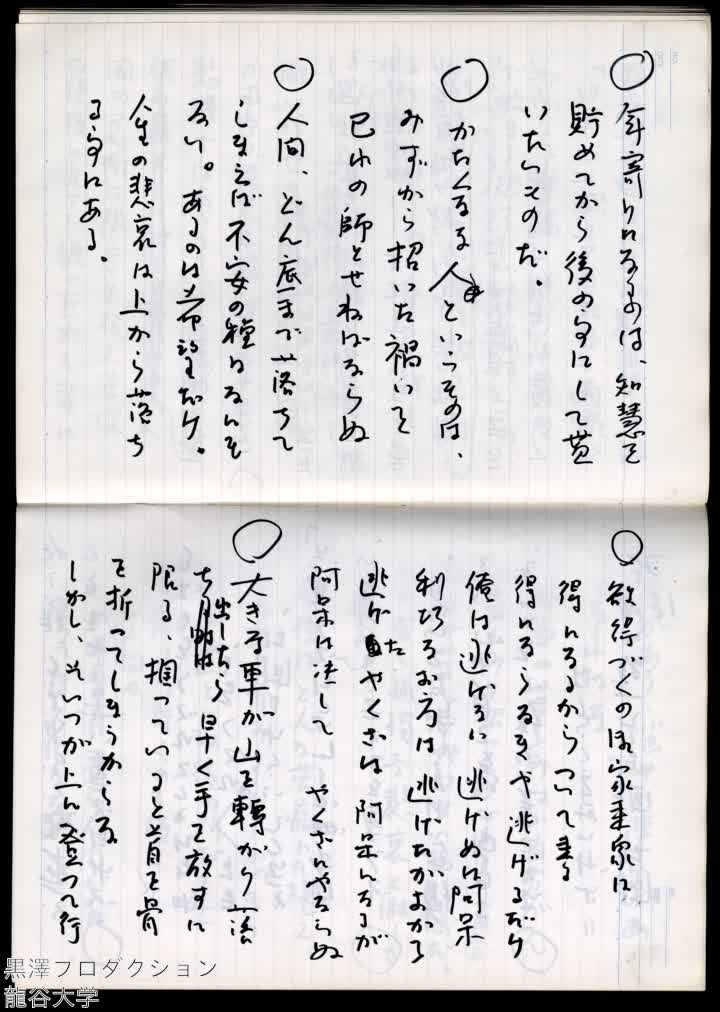 ○ 年寄りになるのは、知慧を
貯めてから後の事にして貰
いたいものだ。
○ かたくなる人というものは、
みずから招いた禍いを
己れの師とせねばならぬ
○ 人間、どん底まで落ちて
しまえば不安の種はなんも
ない。あるのは希望だけ。
人生の悲哀は上から落ち
る事にある。
○ 欲得づくの
得になるから ついて来る
得にならなきゃ逃げるだけ
俺は逃げない 逃げぬは阿呆
利巧なお方は 逃げたがよかろ
逃げた やくざは 阿呆になるが
阿呆は決して やくざにやならぬ
○ 大きな車が山を轉がり落
ち出したら 早く手を放すに
限る、掴っていると首を骨
を折ってしまうからな
しかし、そいつが上に登って行
黒澤プロダクション
龍谷大学